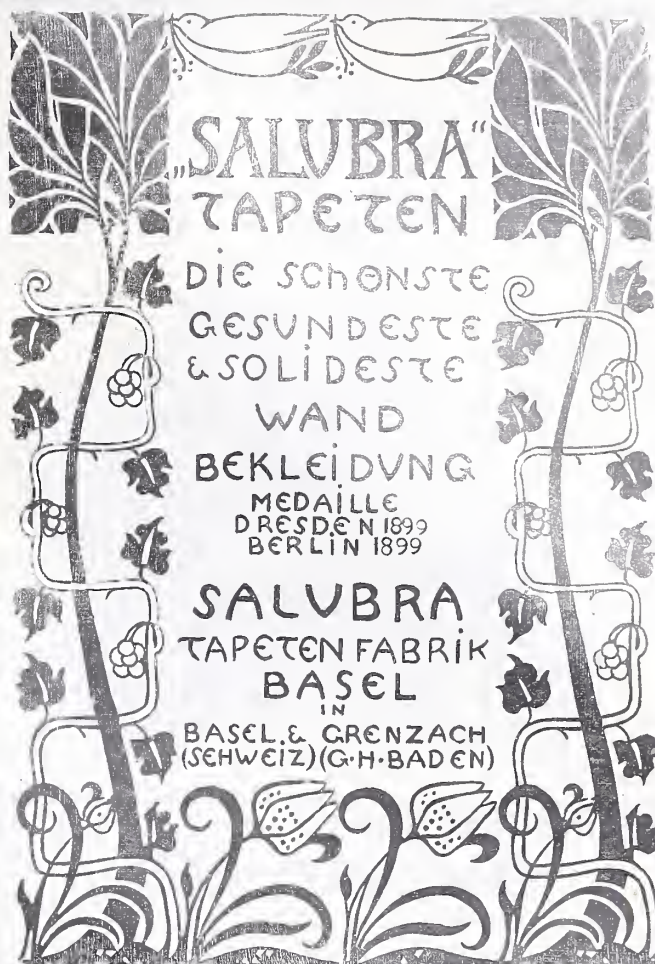 „SALUBRA“
TAPETEN
DIE SCHONSTE
GESUNDESTE
& SOLIDESTE
WAND
BEKLEIDUNG
MEDAILLE
DRESDEN 1899
BERLIN 1899
SALUBRA
TAPETEN FABRIK
BASEL
IN
BASEL & GRENZACH
(SCHWEIZ) (G·H·BADEN)